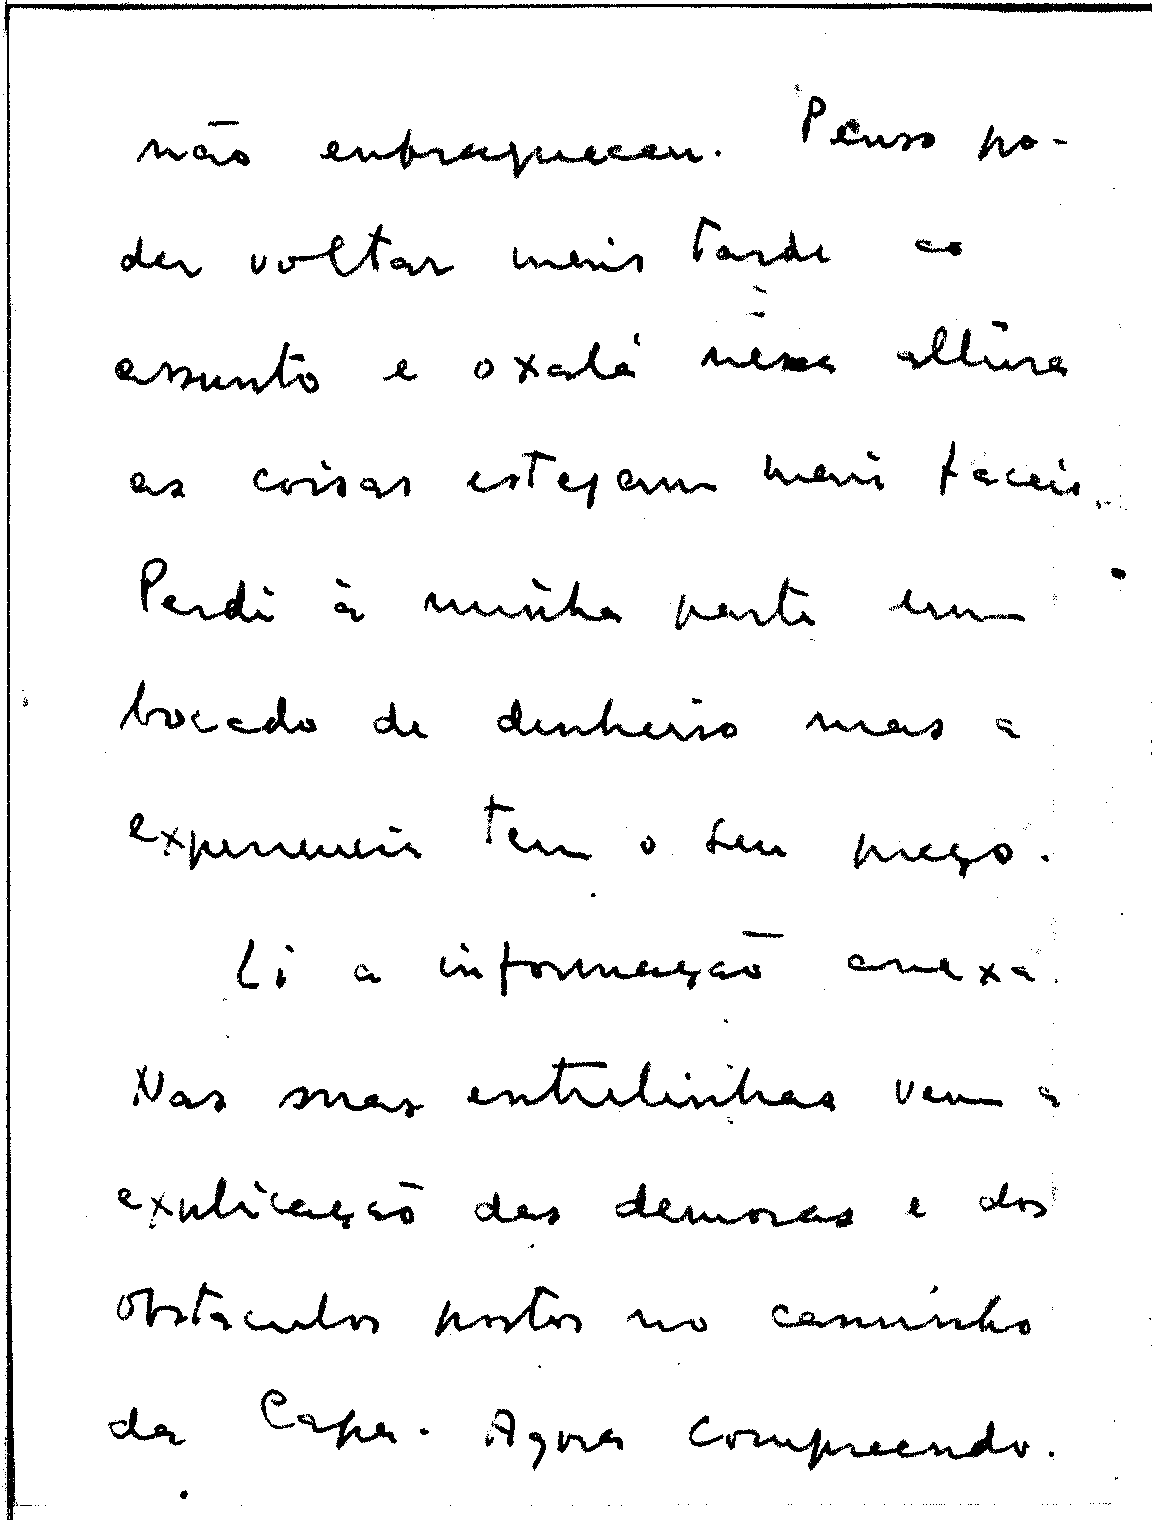 não enfraqueceu. Penso po-
der voltar mais tarde ao
assunto e oxalá nessa altura
as coisas estejam mais faceis.
Perdi à minha parte um
bocado de dinheiro mas a
experiencia tem o seu preço.
Li a informação anexa.
Nas suas entrelinhas vem a
explicação das demoras e dos
obstaculos postos no caminho
da Capa. Agora compreendo.